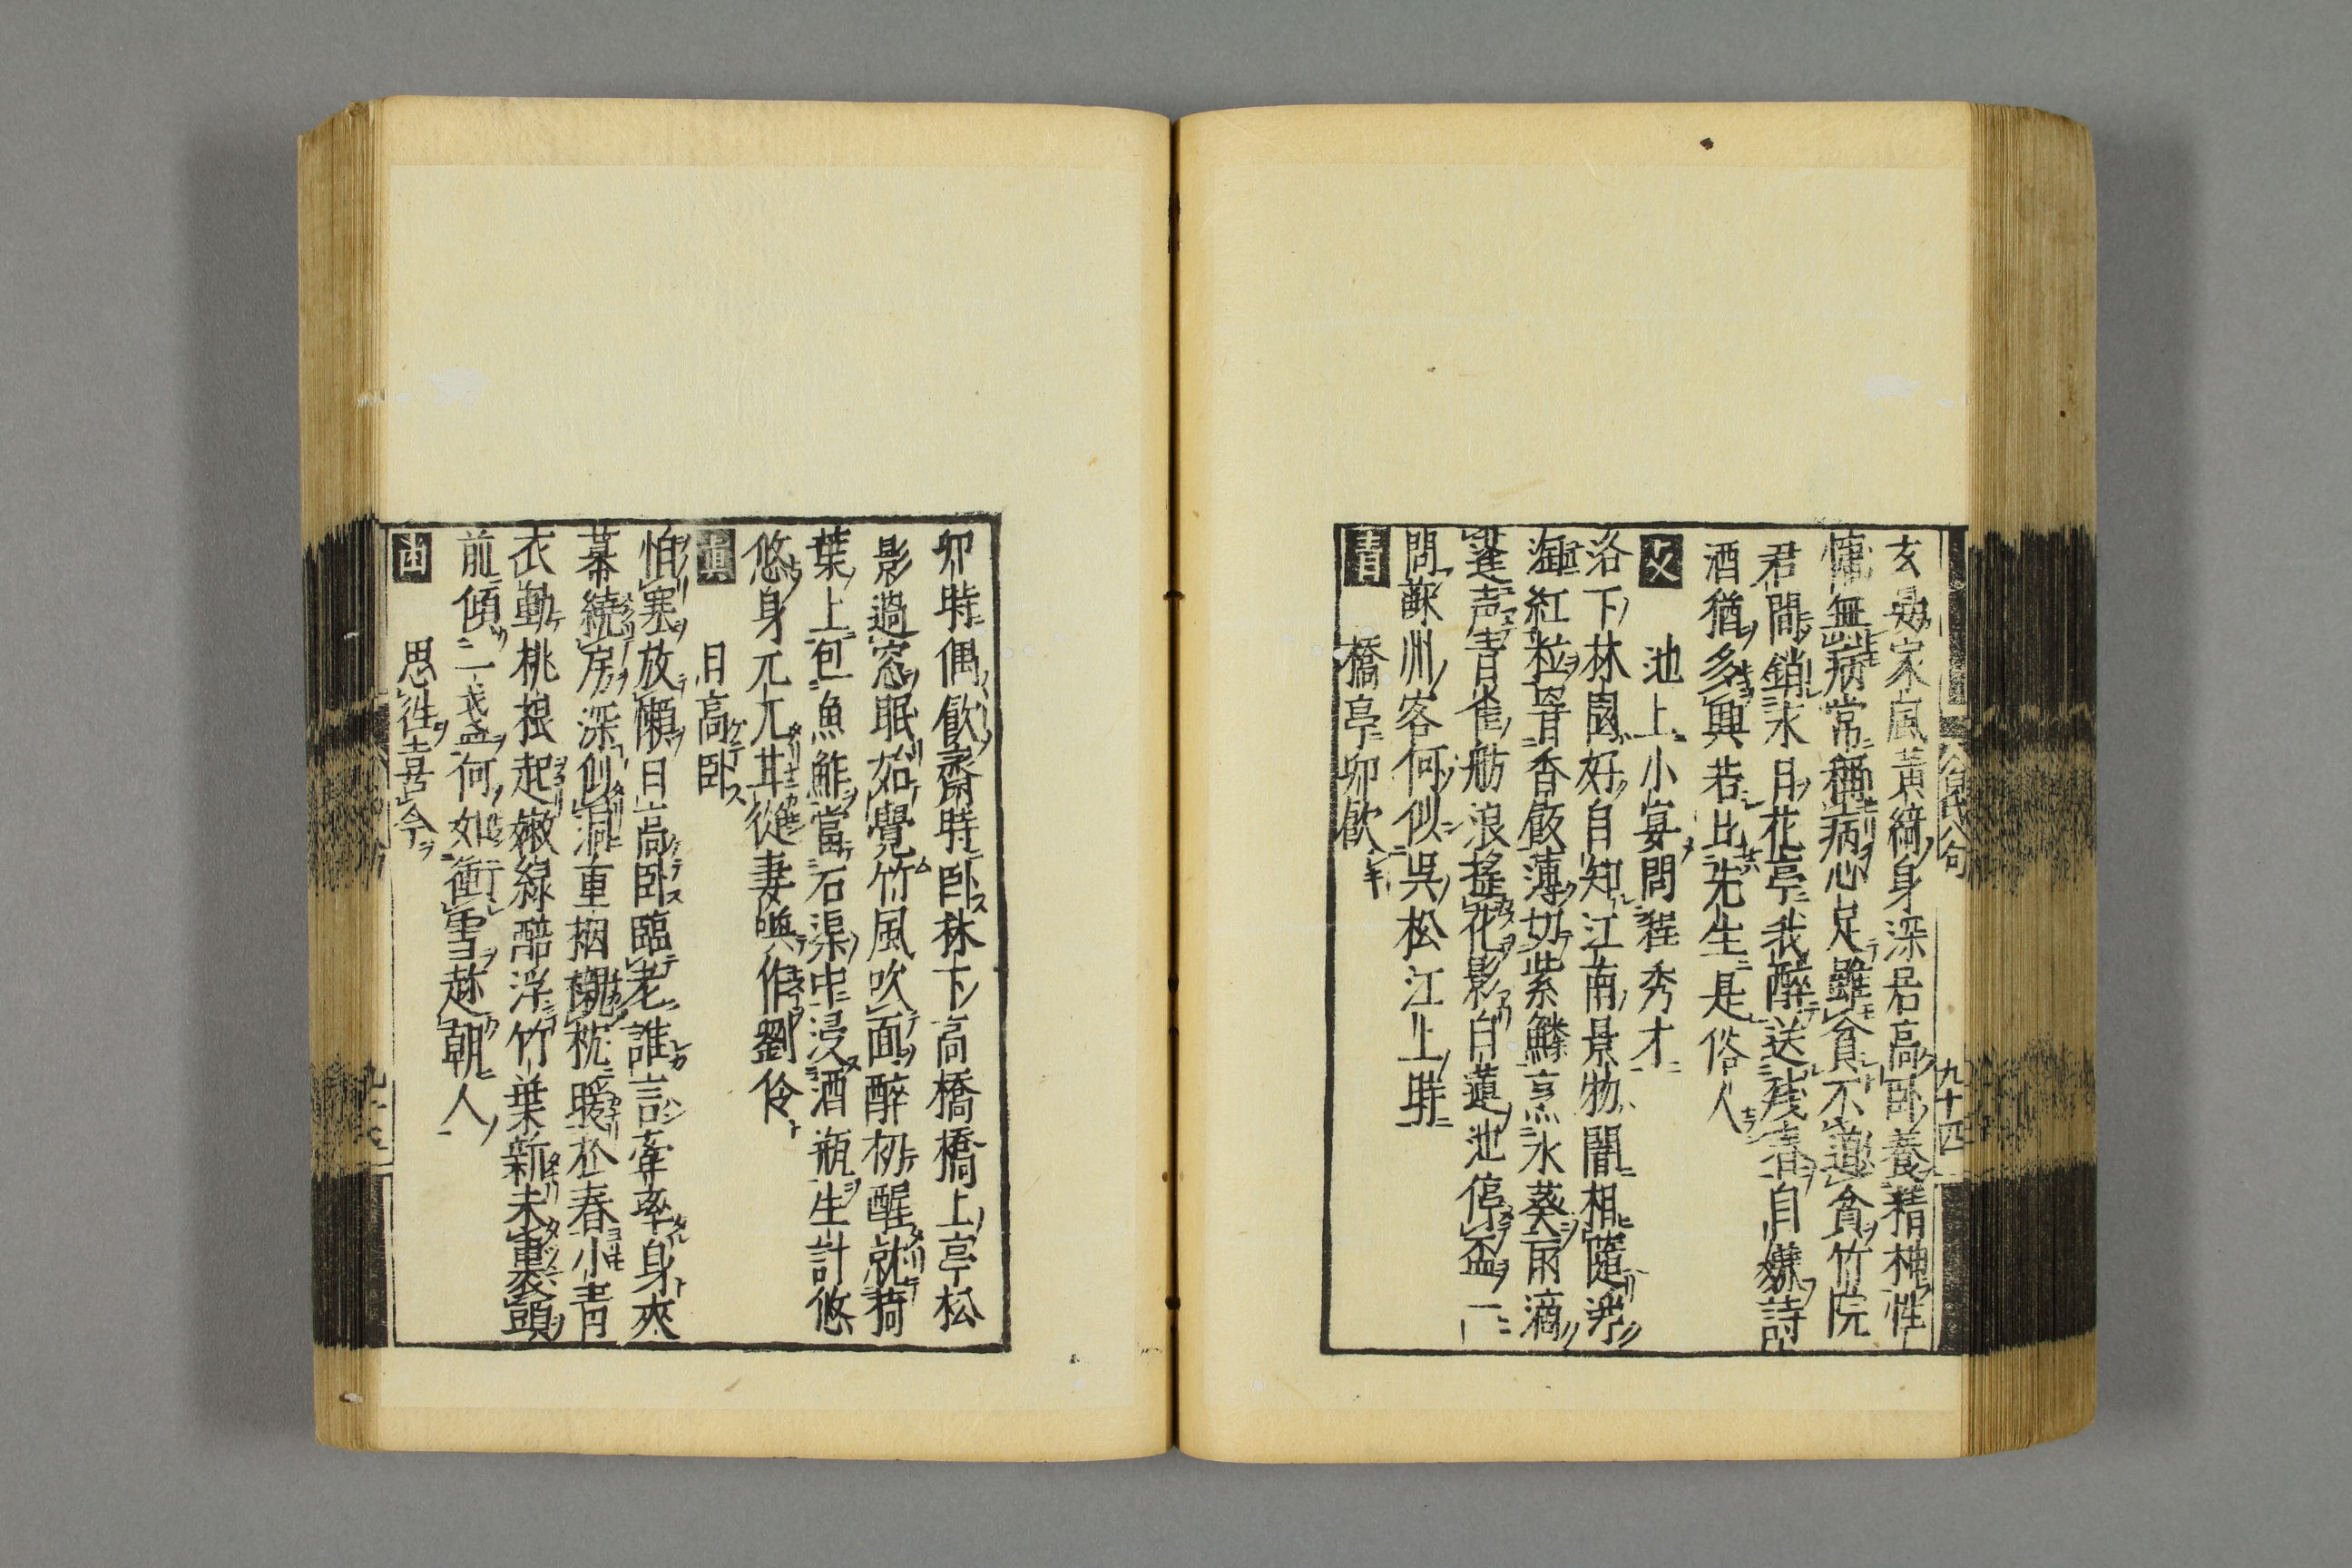 玄晏家風黄綺身深居高卧養精神性
慵無病常稱病心足雖貧不道貧竹院
君閒銷永日花亭我醉送残春自嫌詩
酒猶多興若比先生是俗人
文
池上小宴問程秀才
洛下林園好自知江南景物闇相隨浄
淘紅粒香飯薄切紫鱗烹水葵雨滴
篷声青雀舫浪揺花影白蓮池停盃一
問蘇州客何似呉松江上時
青
橋亭卯飲
九十四
卯時偶飲齋時卧林下高橋橋上亭松
影過窓眠始覺竹風吹面醉初醒就荷
葉上包魚鮓當石渠中浸酒瓶生計悠
悠身兀兀甘從妻喚作劉伶
真
日高卧
怕寒放懶日高卧臨老誰言牽率身夾
幕繞房深似洞重裀襯枕暖於春小青
衣動桃根起嫩緑醅浮竹葉新未裹頭
前傾一盞何如衝雪趂朝人
思往喜今